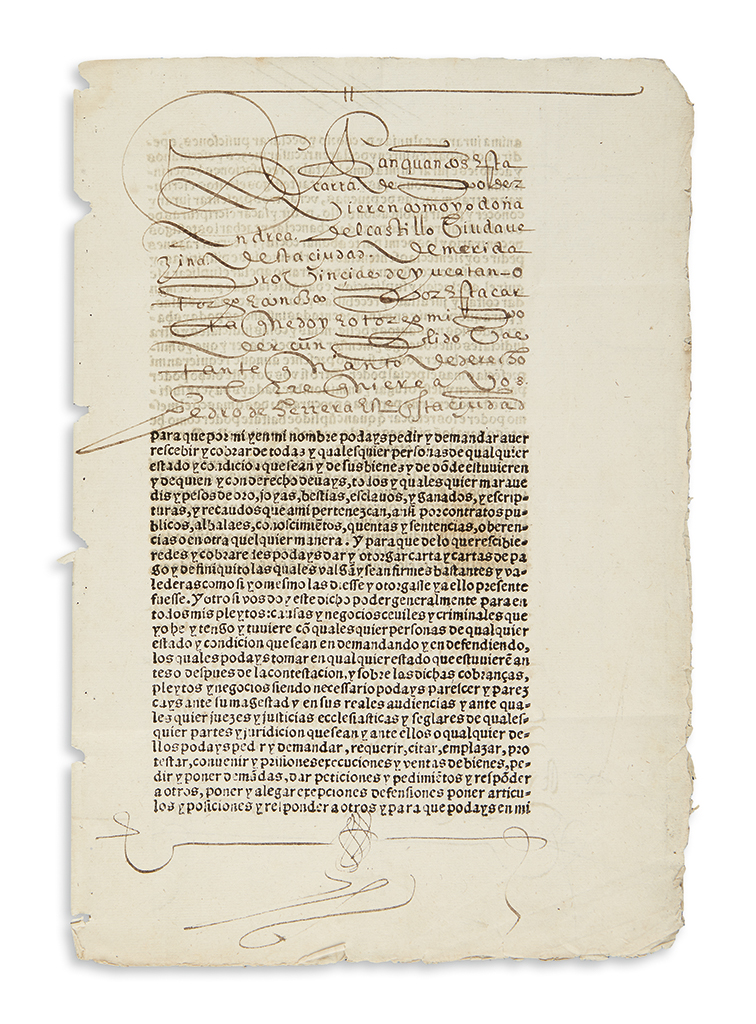 Sepan quantos esta
carta de Poder
vieren como yo doña
Andrea del castillo biuda ve
zina desta ciudad de merida
Provinciae de yucatan o
torgo e conozco Por esta car
ta que doy e otorgo mi Po
der cunplido bas
tante quanto de derecho
se requiere a vos
Pedro de Herrera esta ciudad
para que por mi y en mi nombre podays pedir y demandar auer
rescebir y cobrar de todas y qualesquier personas de qualquier
estado y condicion que sean y de sus bienes y de dõde estuuieren
y de quien y con derecho deuays, todos y quales quier maraue
dis y pesos de oro, joyas, bestias, esclauos, y ganados, y escrip-
turas, y recaudos que a mi pertenezcan, assi por contratos pu-
blicos, albalaes, conoscimiẽtos, quentas y sentencias, o heren-
cias o en otra quelquier manera. Y para que de lo que rescibie-
redes y cobraredes podays dar y otorgar carta y cartas de pa
go y de finiquito las quales valgã y sean firmes bastantes y va-
lederas como si yo mesmo las diesse y otorgasse y a ello presente
fuesse. Y otrosi vos doy este dicho poder generalmente para en
todos mis pleytos: causas y negocios ceuiles y criminales que
yo he y tengo y tuuiere cõ quales quier personas de qualquier
estado y condicion que sean en demandando y en defendiendo,
los quales podays tomar en qualquier estado que estuuierẽ an
tes o despues de la contestacion, y sobre las dichas cobranças,
pleytos y negocios siendo necessario podays parescer y parez
cays ante su magestad y en sus reales audiencias y ante qua-
les quier juezes y justicias ecclesiasticas y seglares de quales-
quier partes y juridicion que sean y ante ellos o qualquier de-
llos podays pedir y demandar, requerir, citar, emplazar, pro
testar, conuenir y prisiones execuciones y ventas de bienes, pe-
dir y poner demãdas, dar peticiones y pedimiẽtos y respõder
a otros, poner y alegar excepciones defensiones poner articu-
los y posiciones y responder a otros y para que podays en mi